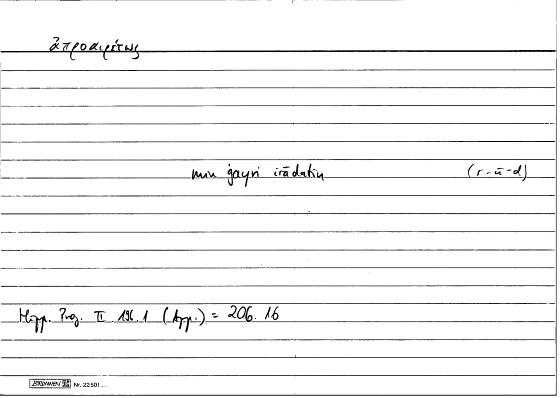 ἀπροαιρέτως
min ġayri irādatin (r-ū-d)
Hipp. Prog. II 196.1 (App.) = 206.16
BRUNNEN Nr. 22 501